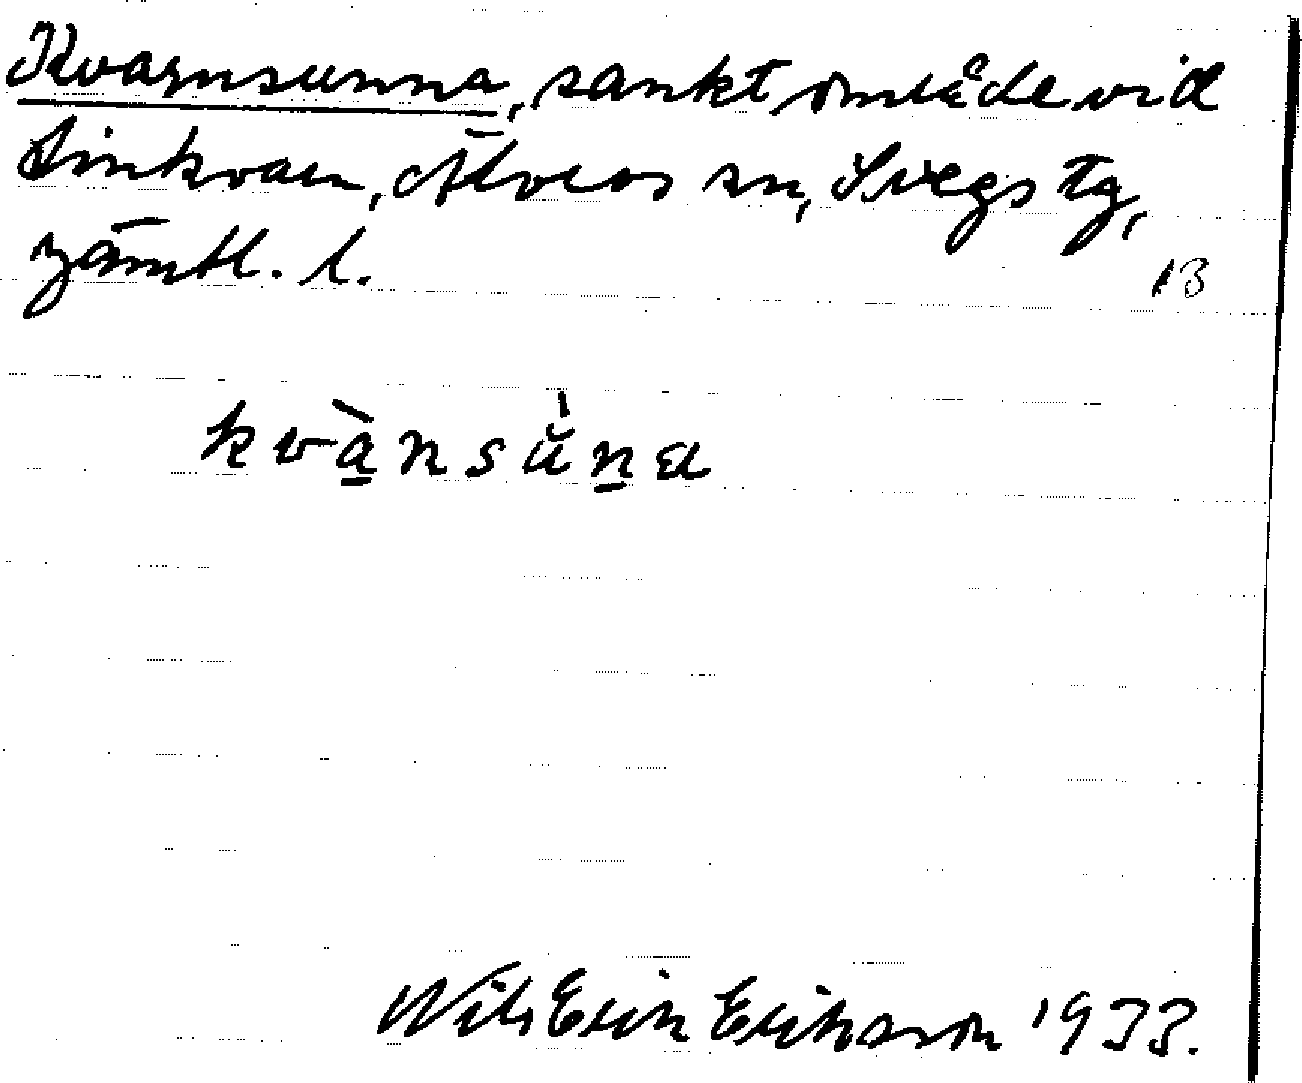 Kvarnsunna, sankt område vid
Linkvarn, Älvros sn, Svegs tg,
Jämtl. l.
13
kvànsùna
Nils Erik Eriksson 1933.